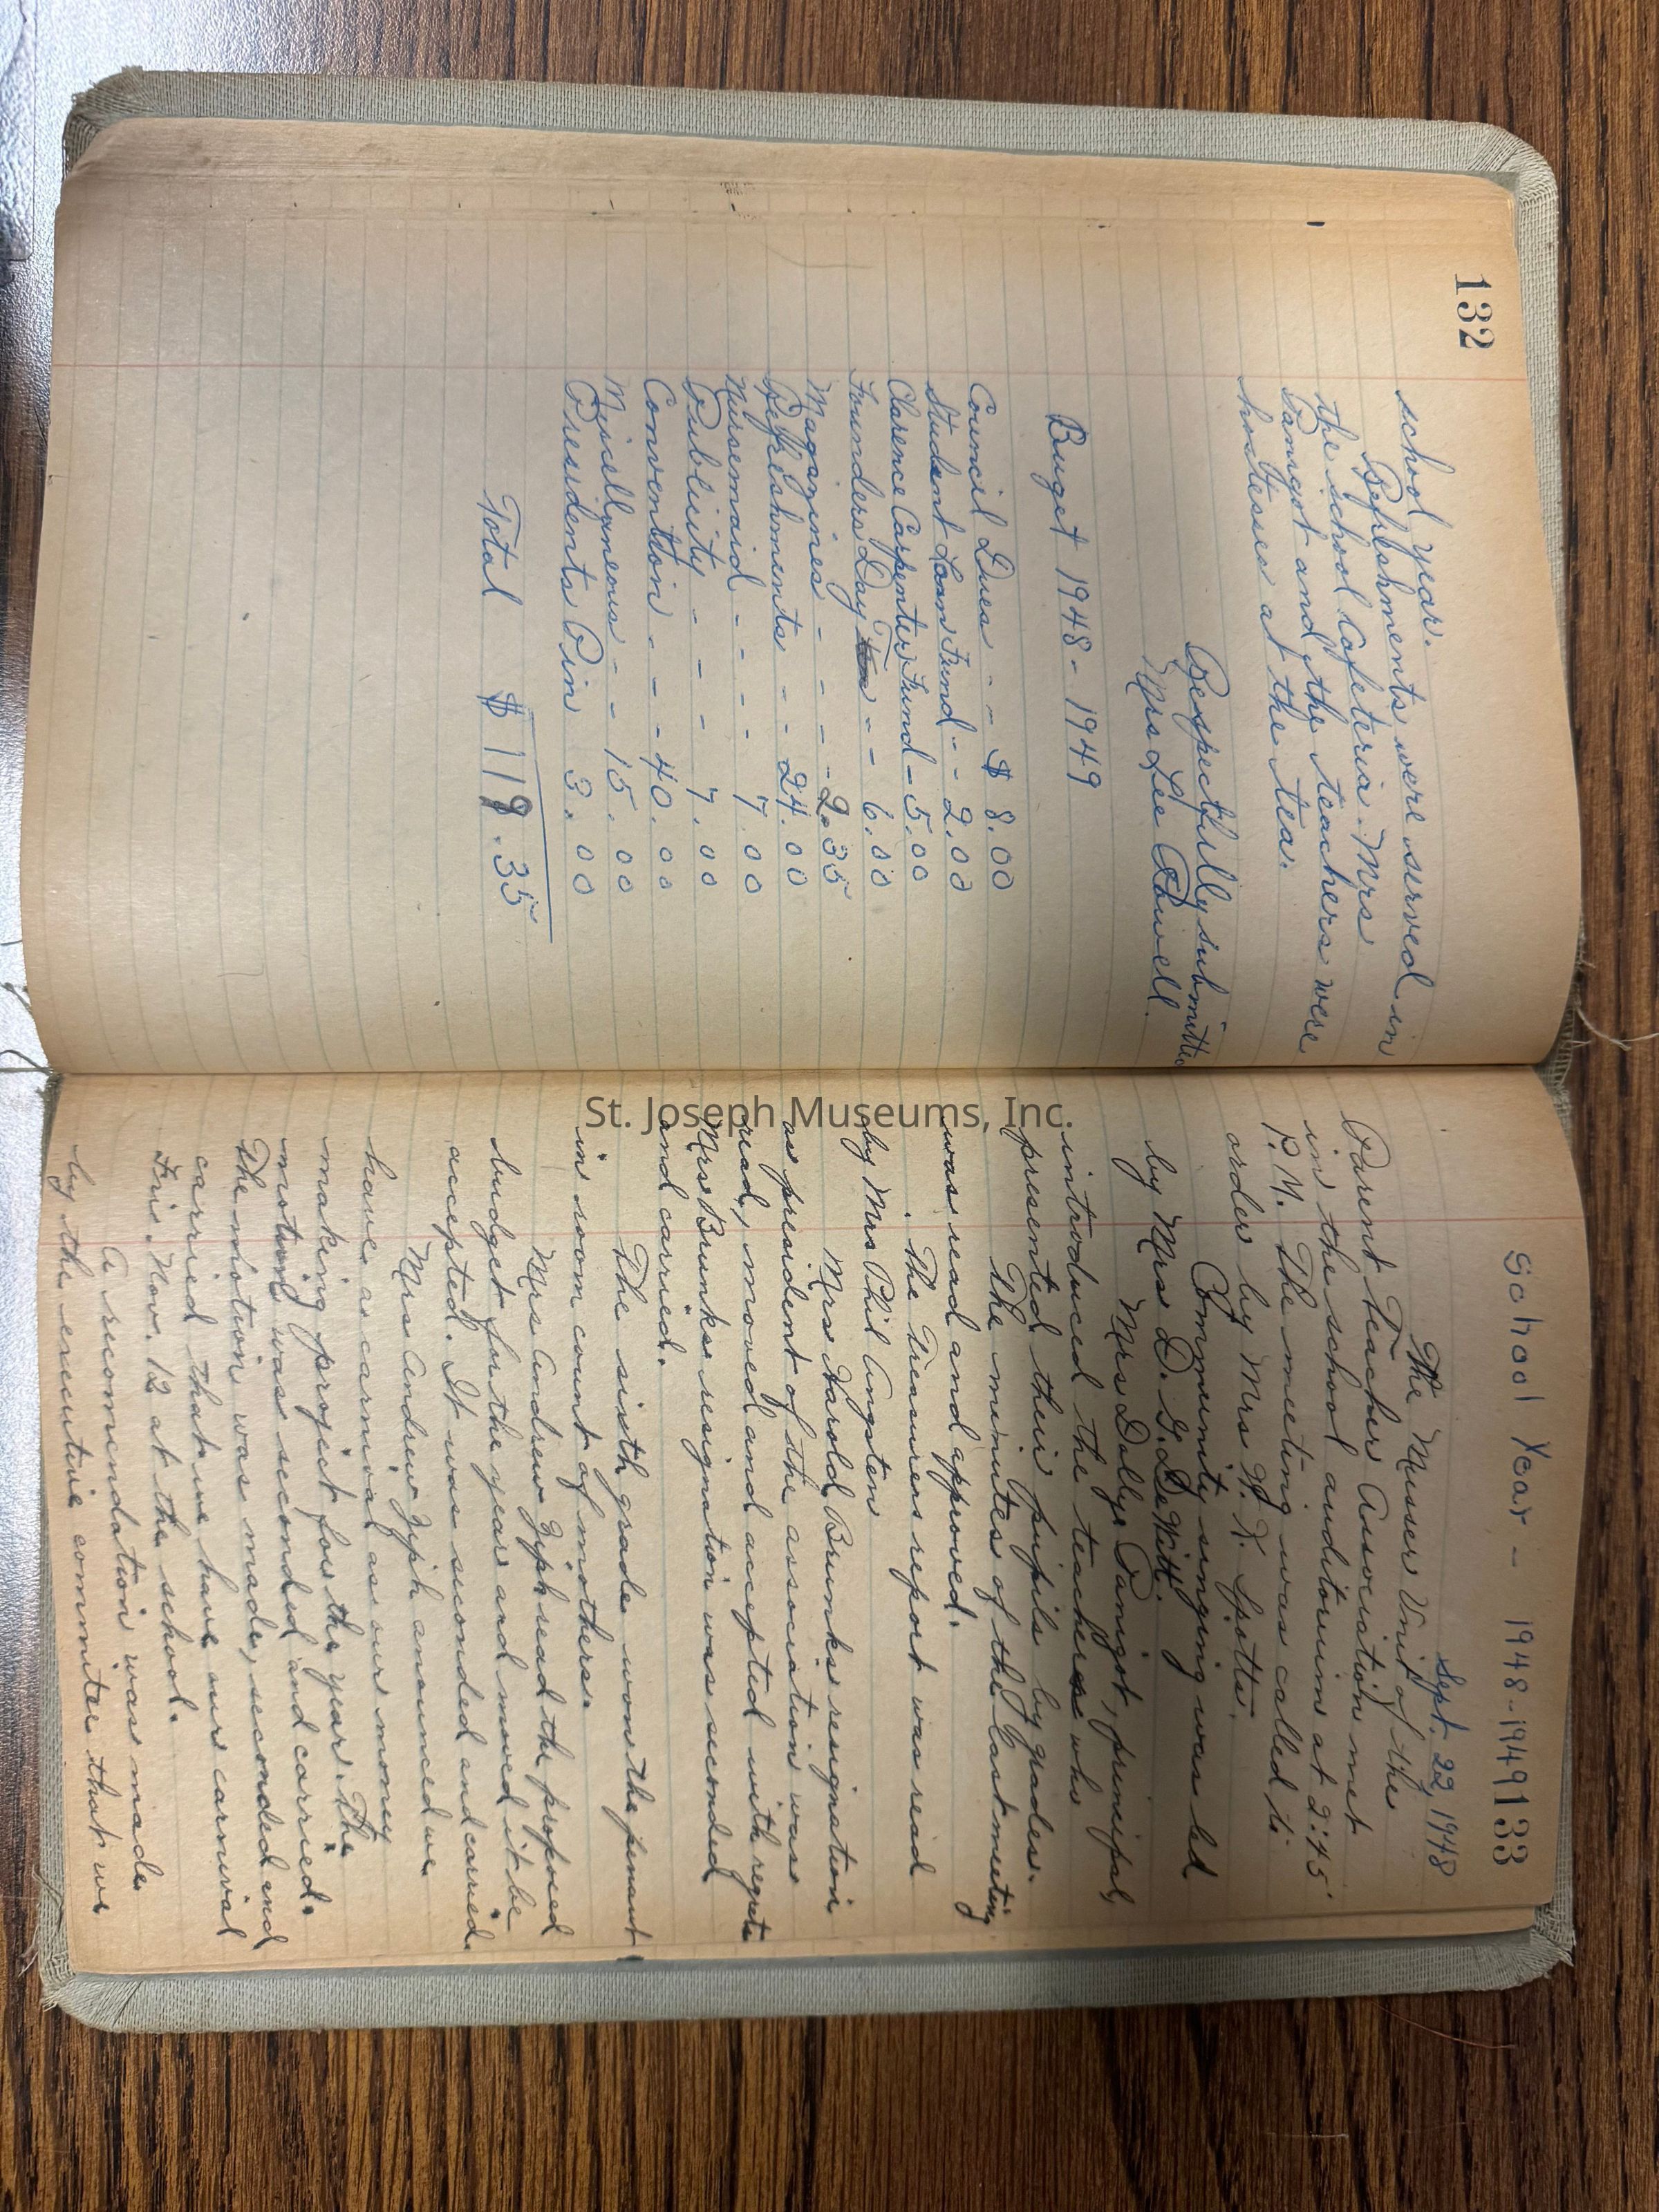 132
school year.
Refreshments were served in
the school Cafeteria. Mrs
Panigot and the teachers were
hostesses at the tea.
Respectfully submitted
Mrs Lee Powell.
Buget 1948 - 1949
Council Dues - - $ 8.00
Student Loan Fund - - 2.00
Clarence Carpenter Fund - 5.00
Founders Day - - 6.00
Magazines - - - 2.35
Refreshments - - 24.00
Nursemaid - - - 7.00
Publicity - - - 7.00
Convention - - - 40.00
Misellaneous - - 15.00
Presidents Pin 3.00
Total $119.35
School Year - 1948-1949 133
Sept. 22, 1948
The Musser Unit of the
Parent Teacher Association met
in the school auditorium at 2:45
P.M. The meeting was called to
order by Mrs W. X. Spotts.
Community singing was led
by Mrs D. G. DeWitt.
Mrs Dolly Panigot, principal,
introduced the teachers who
presented their pupils by grades.
The minutes of the last meeting
was read and approved.
The Treasurers report was read
by Mrs Phil Angsten
Mrs Harold Brunks resignation
as president of the association was
read, moved and accepted with regrets
Mrs Brunks resignation was seconded
and carried.
The sixth grade won the penant
in room count of mothers.
Mrs Andrew Ziph read the proposed
budget for the year and moved it be
accepted. It was seconded and carried.
Mrs Andrew Ziph announced we
have a carnival as our money
making project for the year. The
motion was seconded and carried.
The motion was made, seconded and
carried that we have our carnival
Fri. Nov. 12 at the school.
A recomendation was made
by the executive commitee that we
St. Joseph Museums, Inc.